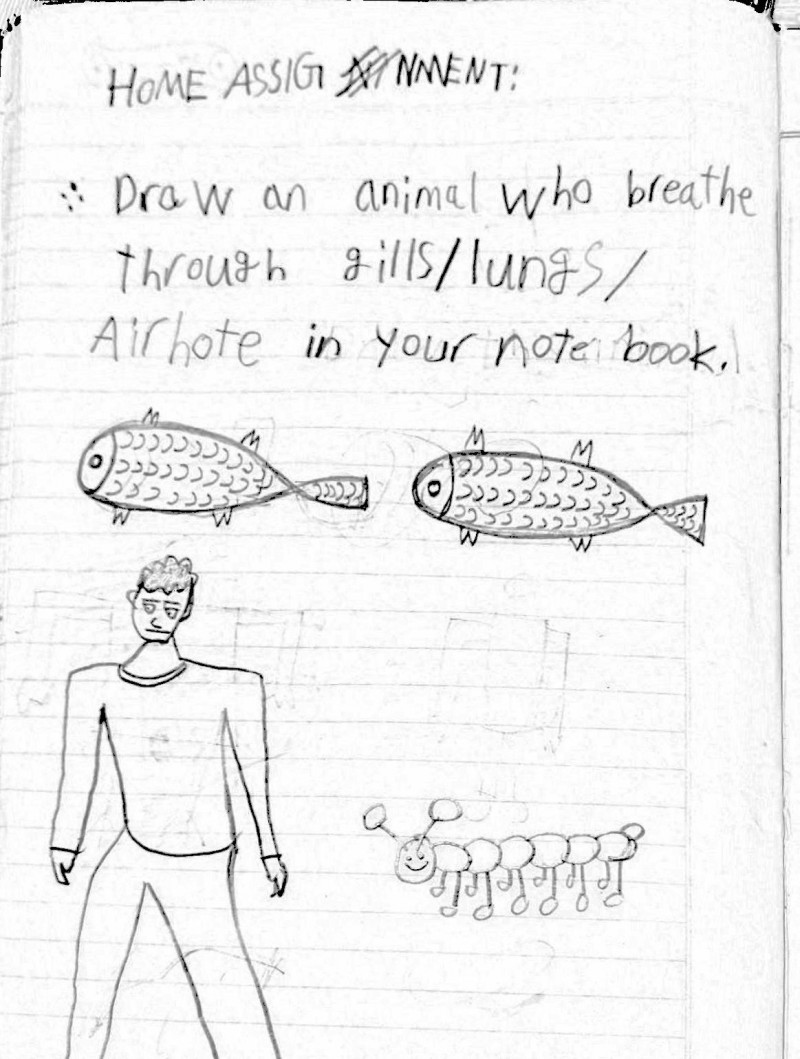 HOME ASSIGNMENT:
∴ Draw an animal who breathe
through gills/lungs/
Airhote in your note book.